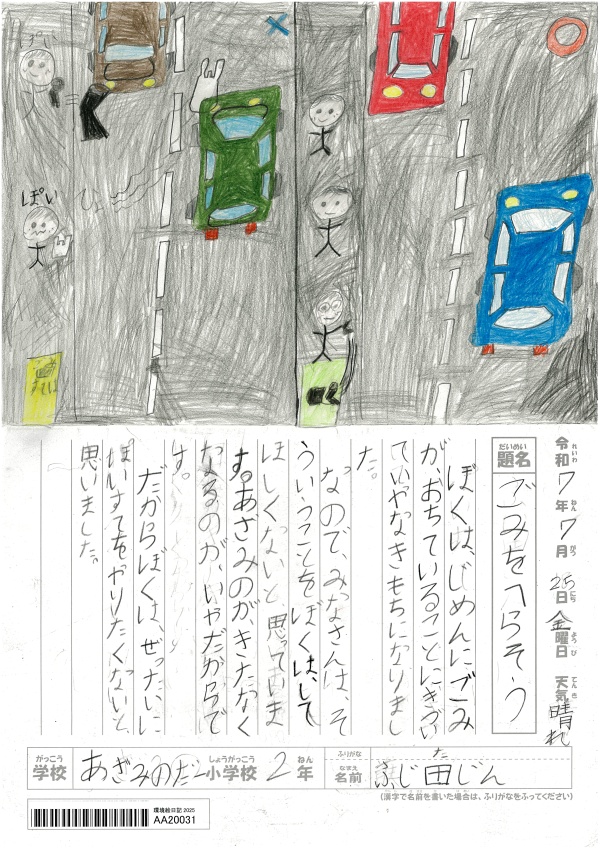 ぽい
ぽい
すてば
令和7年7月25日金曜日 天気晴れ
れいわ ねん がつ にち ようび てんき
だいめい
題名 ごみをへらそう
ぼくは、じめんにごみ
が、おちていることにきづい
ていやなきもちになりまし
た。
なので、みなさんは、そ
ういうことをぼくは、して
ほしくないと思っていま
す。あざみのがきたなく
なるのが、いやだからで
す。
だからぼくは、ぜったいに
ぽいすてをやりたくないと、
思いました。
がっこう しょうがっこう ねん
学校 あざみのだ2小学校 2年
ふりがな た
なまえ
名前 ふじ田じん
(漢字で名前を書いた場合は、ふりがなをふってください)
環境絵日記 2025
AA20031